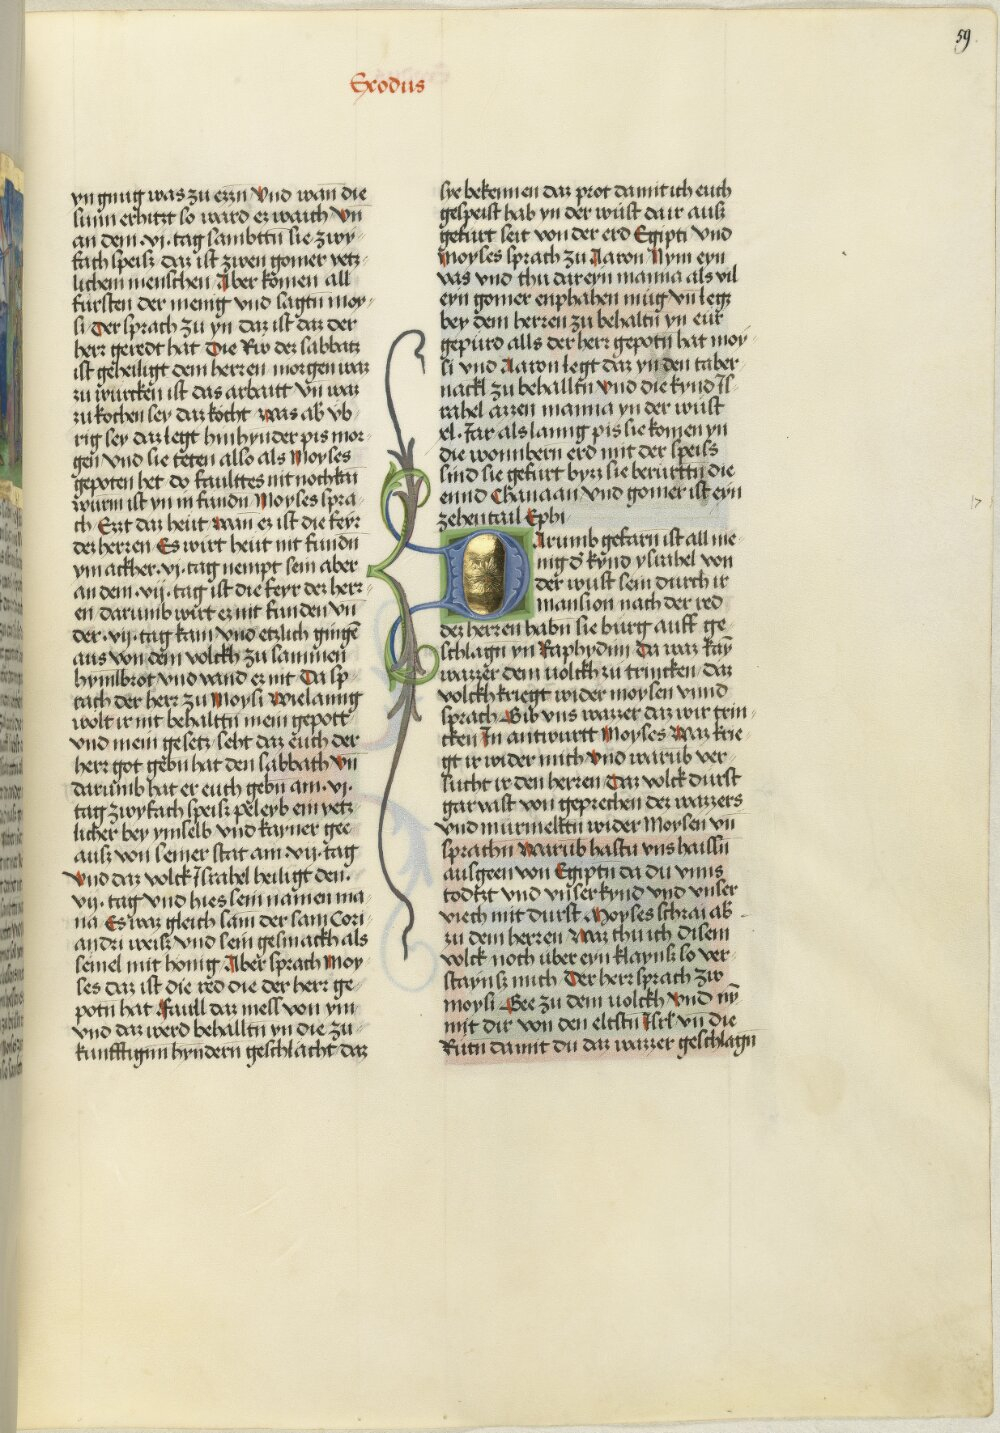 59
Exodus
yn gnug was zu ezzn Vnd wan die
sunn erhitzt so ward ez waich Vn
an dem .vi. tag sambttn sie zwy-
fach speisz daz ist zwen gomer yetz-
lichem menschen Aber komen all
fursten der menig vnd sagtn moy-
si Der sprach zu yn daz ist daz der
herr geredt hat Die Rw dez sabbatz
ist geheiligt dem herren morgen waz
zu wurcken ist das arbaitt Vn waz
zu kochen sey daz kocht was ab vb-
rig sey daz legt hinhynder pis mor-
gen Vnd sie teten allso als Moyses
gepoten het do faulttes nit noch kain
wurm ist yn im fundn Moyses spra-
ch Ezzt daz heut Wan ez ist die feyr
dez herren Es wirt heut nit fundn
ym ackher .vi. tag nempt sein aber
an dem .vii. tag ist die feyr dez herr-
en darumb wurt ez nit funden Vn
der .vii. tag kam Vnd etzlich gingē
aus von dem volckh zu sammen
hymlbrot Vnd vand ez nit Da sp-
rach der herr zu Moysi Wielanng
wolt ir nit behalttn mein gepott
Vnd mein gesetz seht daz euch der
herr got gebn hat den sabbath Vn
darumb hat er euch gebn am .vi.
tag zwyfach speisz peleyb ein yetz-
licher bey ymselb Vnd kayner gee
ausz von seiner stat am .vii. tag
Vnd daz volck Israhel heiligt den
.vii. tag Vnd hies sein namen ma-
na Es waz gleich sam der sam Cori-
andri weisz Vnd sein gesmackh als
semel mit honig Aber sprach Moy-
ses daz ist die red die der herr ge-
potn hat Faull daz mell von ym
Vnd daz werd behalltn yn die zu-
kunfftignn hyndern geschlacht daz
sye bekennen daz prot damit ich euch
gespeist hab yn der wust da ir ausz
gefurt seit von der erd Egipti Vnd
Moyses sprach zu Aaron Nym eyn
vas vnd thu dar eyn manna als vil
eyn gomer enphahen mug vn legz
bey dem herren zu behaltn yn eur
gepurd alls der herr gepotn hat moy-
si vnd Aaron legt daz yn den taber-
nackl zu behalltn Vnd die kynd Is-
rahel azzen manna yn der wust
xl. Jar als lanng pis sie komen yn
die wonnbern erd mit der speiss
sind sie gefurt byzz sie berurttn die
ennd Chanaan Vnd gomer ist eyn
zehentail Ephi
Darumb gefarn ist all me-
nig d kynd ysrahel von
der wust sein durch ir
mansion nach der red
dez herren habn sie burg auff ge-
schlagn yn Raphydim Da waz kay
wazzer dem volckh zu trincken daz
volckh kriegt wider moysen vnnd
sprach Gib vns wazzer daz wir trin-
cken In antwurtt Moyses Waz krie-
gt ir wider mich Vnd warub ver-
sucht ir den herren Daz volck durst
gar vast von geprechen dez wazzers
Vnd murmelttn wider Moysen vn
sprachn Warub hastu vns haissn
ausgeen von Egiptn da du vnns
todtzt vnd vnser kynd vnd vnser
viech mit durst Moyses schrai ab
zu dem herren Waz thu ich disem
volck noch uber eyn klaynsz so ver-
staynsz mich Der herr sprach zw
moysi Gee zu dem volckh Vnd ny
mit dir von den eltstn Isrl vn die
Rutn damit du daz wazzer geschlagn